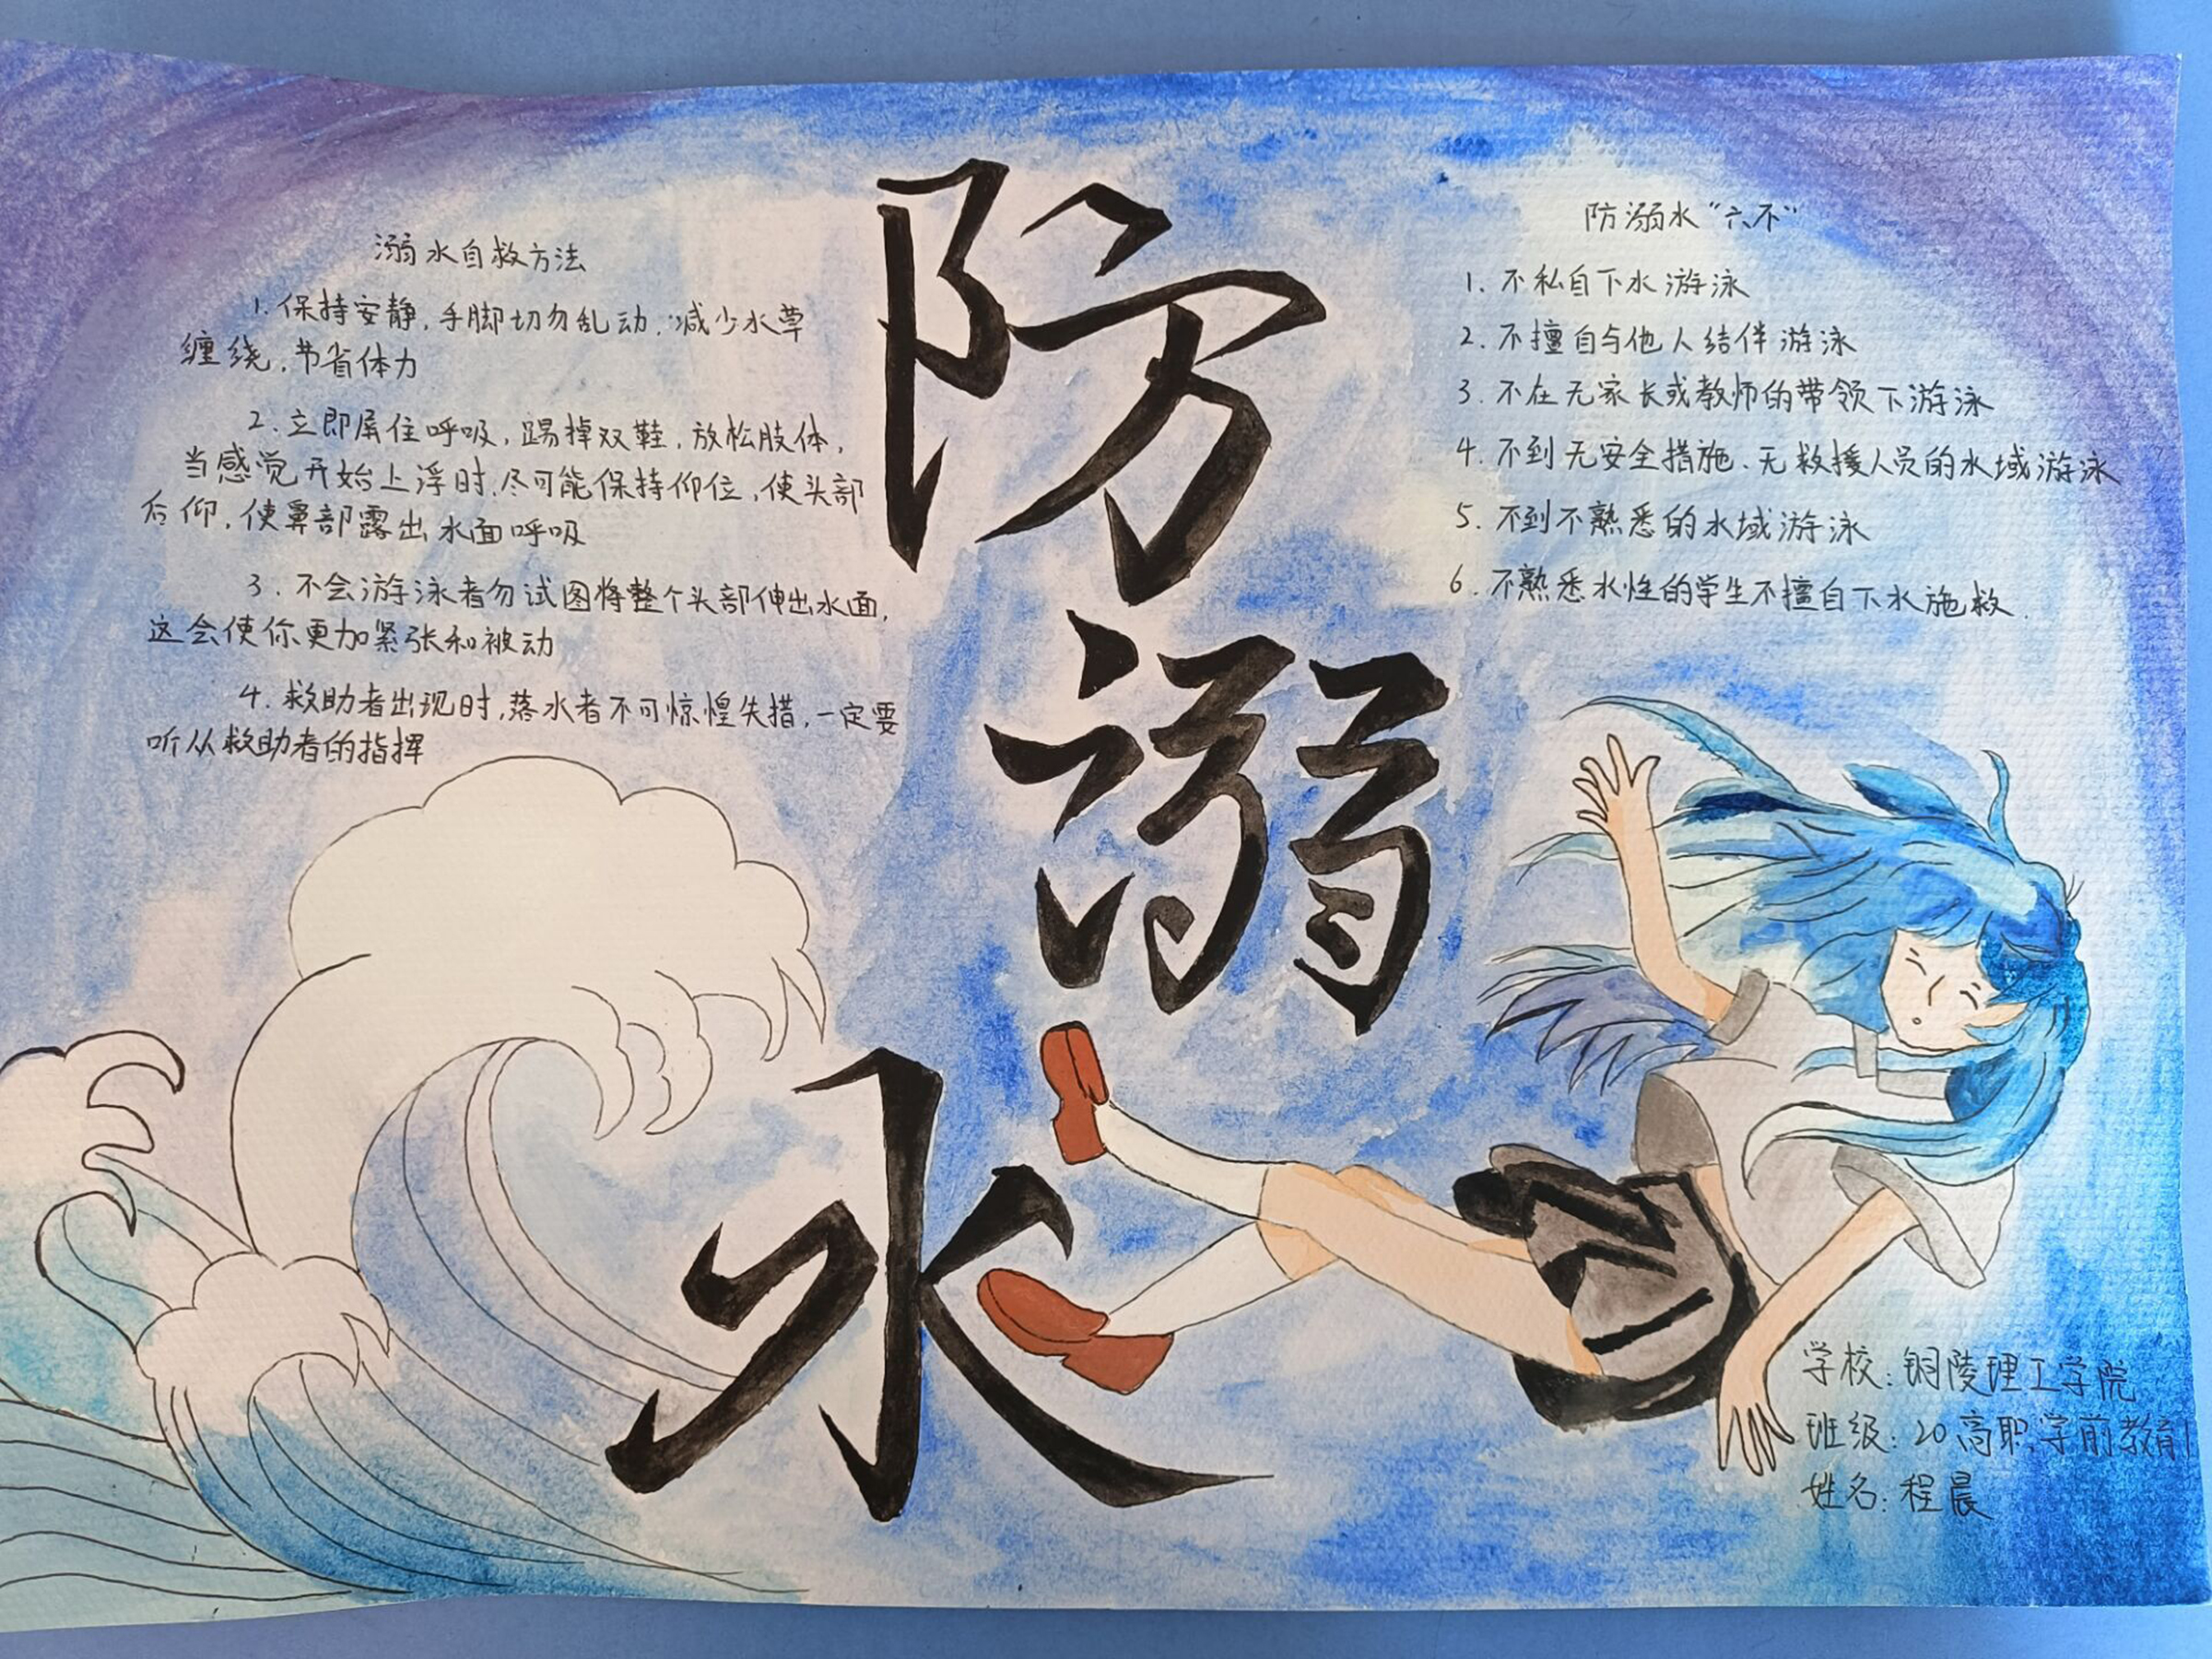 溺水自救方法
1.保持安静,手脚切勿乱动,减少水草
缠绕,节省体力
2.立即屏住呼吸,踢掉双鞋,放松肢体,
当感觉开始上浮时,尽可能保持仰位,使头部
后仰,使鼻部露出水面呼吸
3.不会游泳者勿试图将整个头部伸出水面,
这会使你更加紧张和被动
4.救助者出现时,落水者不可惊惶失措,一定要
听从救助者的指挥
防
溺
水
防溺水“六不”
1、不私自下水游泳
2.不擅自与他人结伴游泳
3.不在无家长或教师的带领下游泳
4.不到无安全措施、无救援人员的水域游泳
5.不到不熟悉的水域游泳
6.不熟悉水性的学生不擅自下水施救.
学校:铜陵理工学院
班级:20高职学前教育1
姓名:程晨